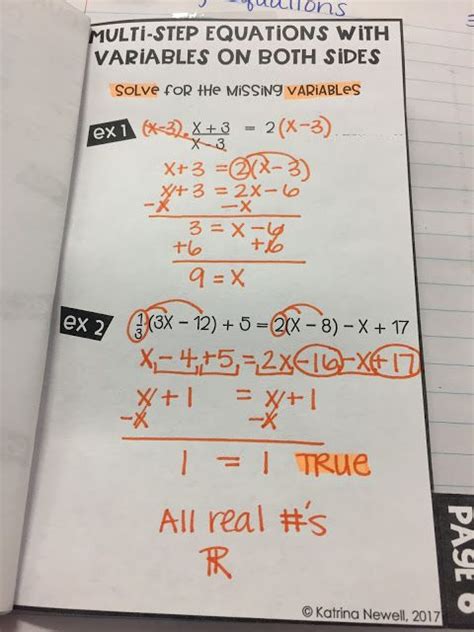 equations
MULTI-STEP EQUATIONS WITH
VARIABLES ON BOTH SIDES
SOLVE FOR THE MISSING VARIABLES
ex 1 (x-3)· x+3 / x-3 = 2(x-3)
x+3 = 2(x-3)
x+3 = 2x-6
-x -x
3 = x-6
+6 +6
9 = x
ex 2 1/3(3x - 12) + 5 = 2(x - 8) - x + 17
x-4+5 = 2x-16-x+17
x+1 = x+1
-x -x
1 = 1 TRUE
All real #'s
ℝ
PAGE 6
© Katrina Newell, 2017